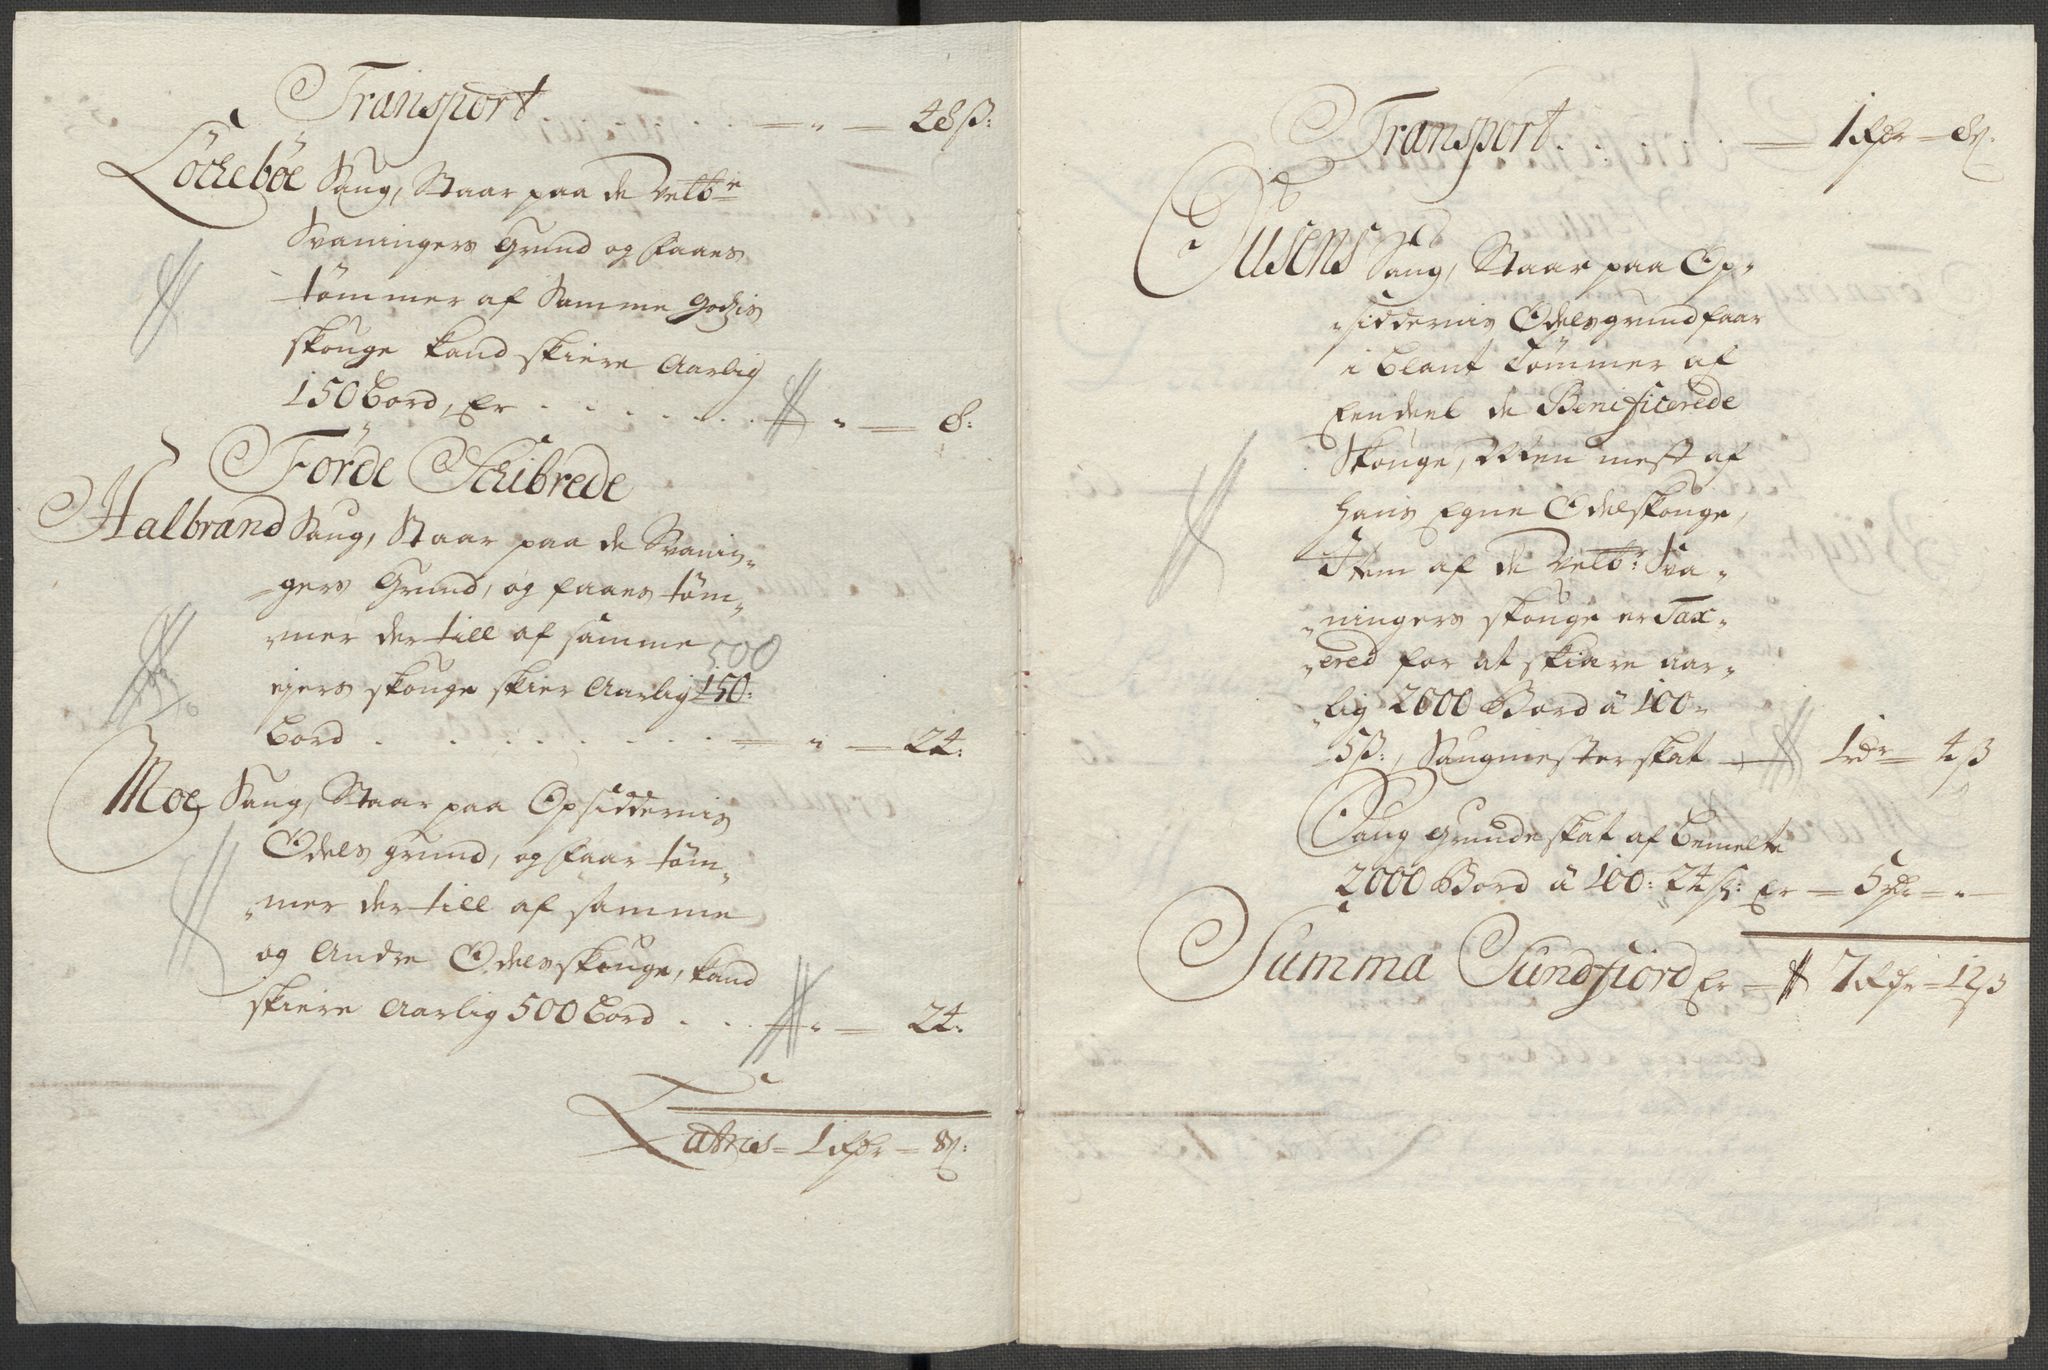 Transport . . — " — 48 ß:
Löckeböe Saug, Staar paa de Velbne
Svaningers Grund og faaes
tömmer af Samme Godzis
skouge kand skiere Aarlig
150 bord, Er . . . . . . . — " — 8:
Förde Schibrede
Halbrand Saug, Staar paa de Svanin„
„gers Grund, og faaes töm„
„mer der till af samme
500
ejers skouge skier Aarlig 150:
bord . . . . . . . . — " — 24:
Moe Saug, Staar paa Opsiddernis
Odels grund, og faar töm„
„mer der till af samme
og Andre Odelsskouge, kand
skiere Aarlig 500 bord . . . — " — 24:
Latries = 1 Rdr = 8 ß:
Transport . . . . — 1 Rdr = 8 ß.
Ousens Saug, Staar paa Op„
„siddernis Odelsgrund faar
i blant Tömmer af
Eendeel de Benificerede
Skouge, Men mest af
hans Egne Odelskouge,
Item af de Velb: Sva„
„ningers skouge er Tax„
„ered for at skiære aar„
„lig 2000 Bord â 100„
5 ß:, Saugmester skat — 1 rdr = 4 ß
Saug Grunde skat af bemelte
2000 Bord â 100: 24 ß: Er — 5 rdr = "
Summa Sundfiord Er = 7 Rdr = 12 ß